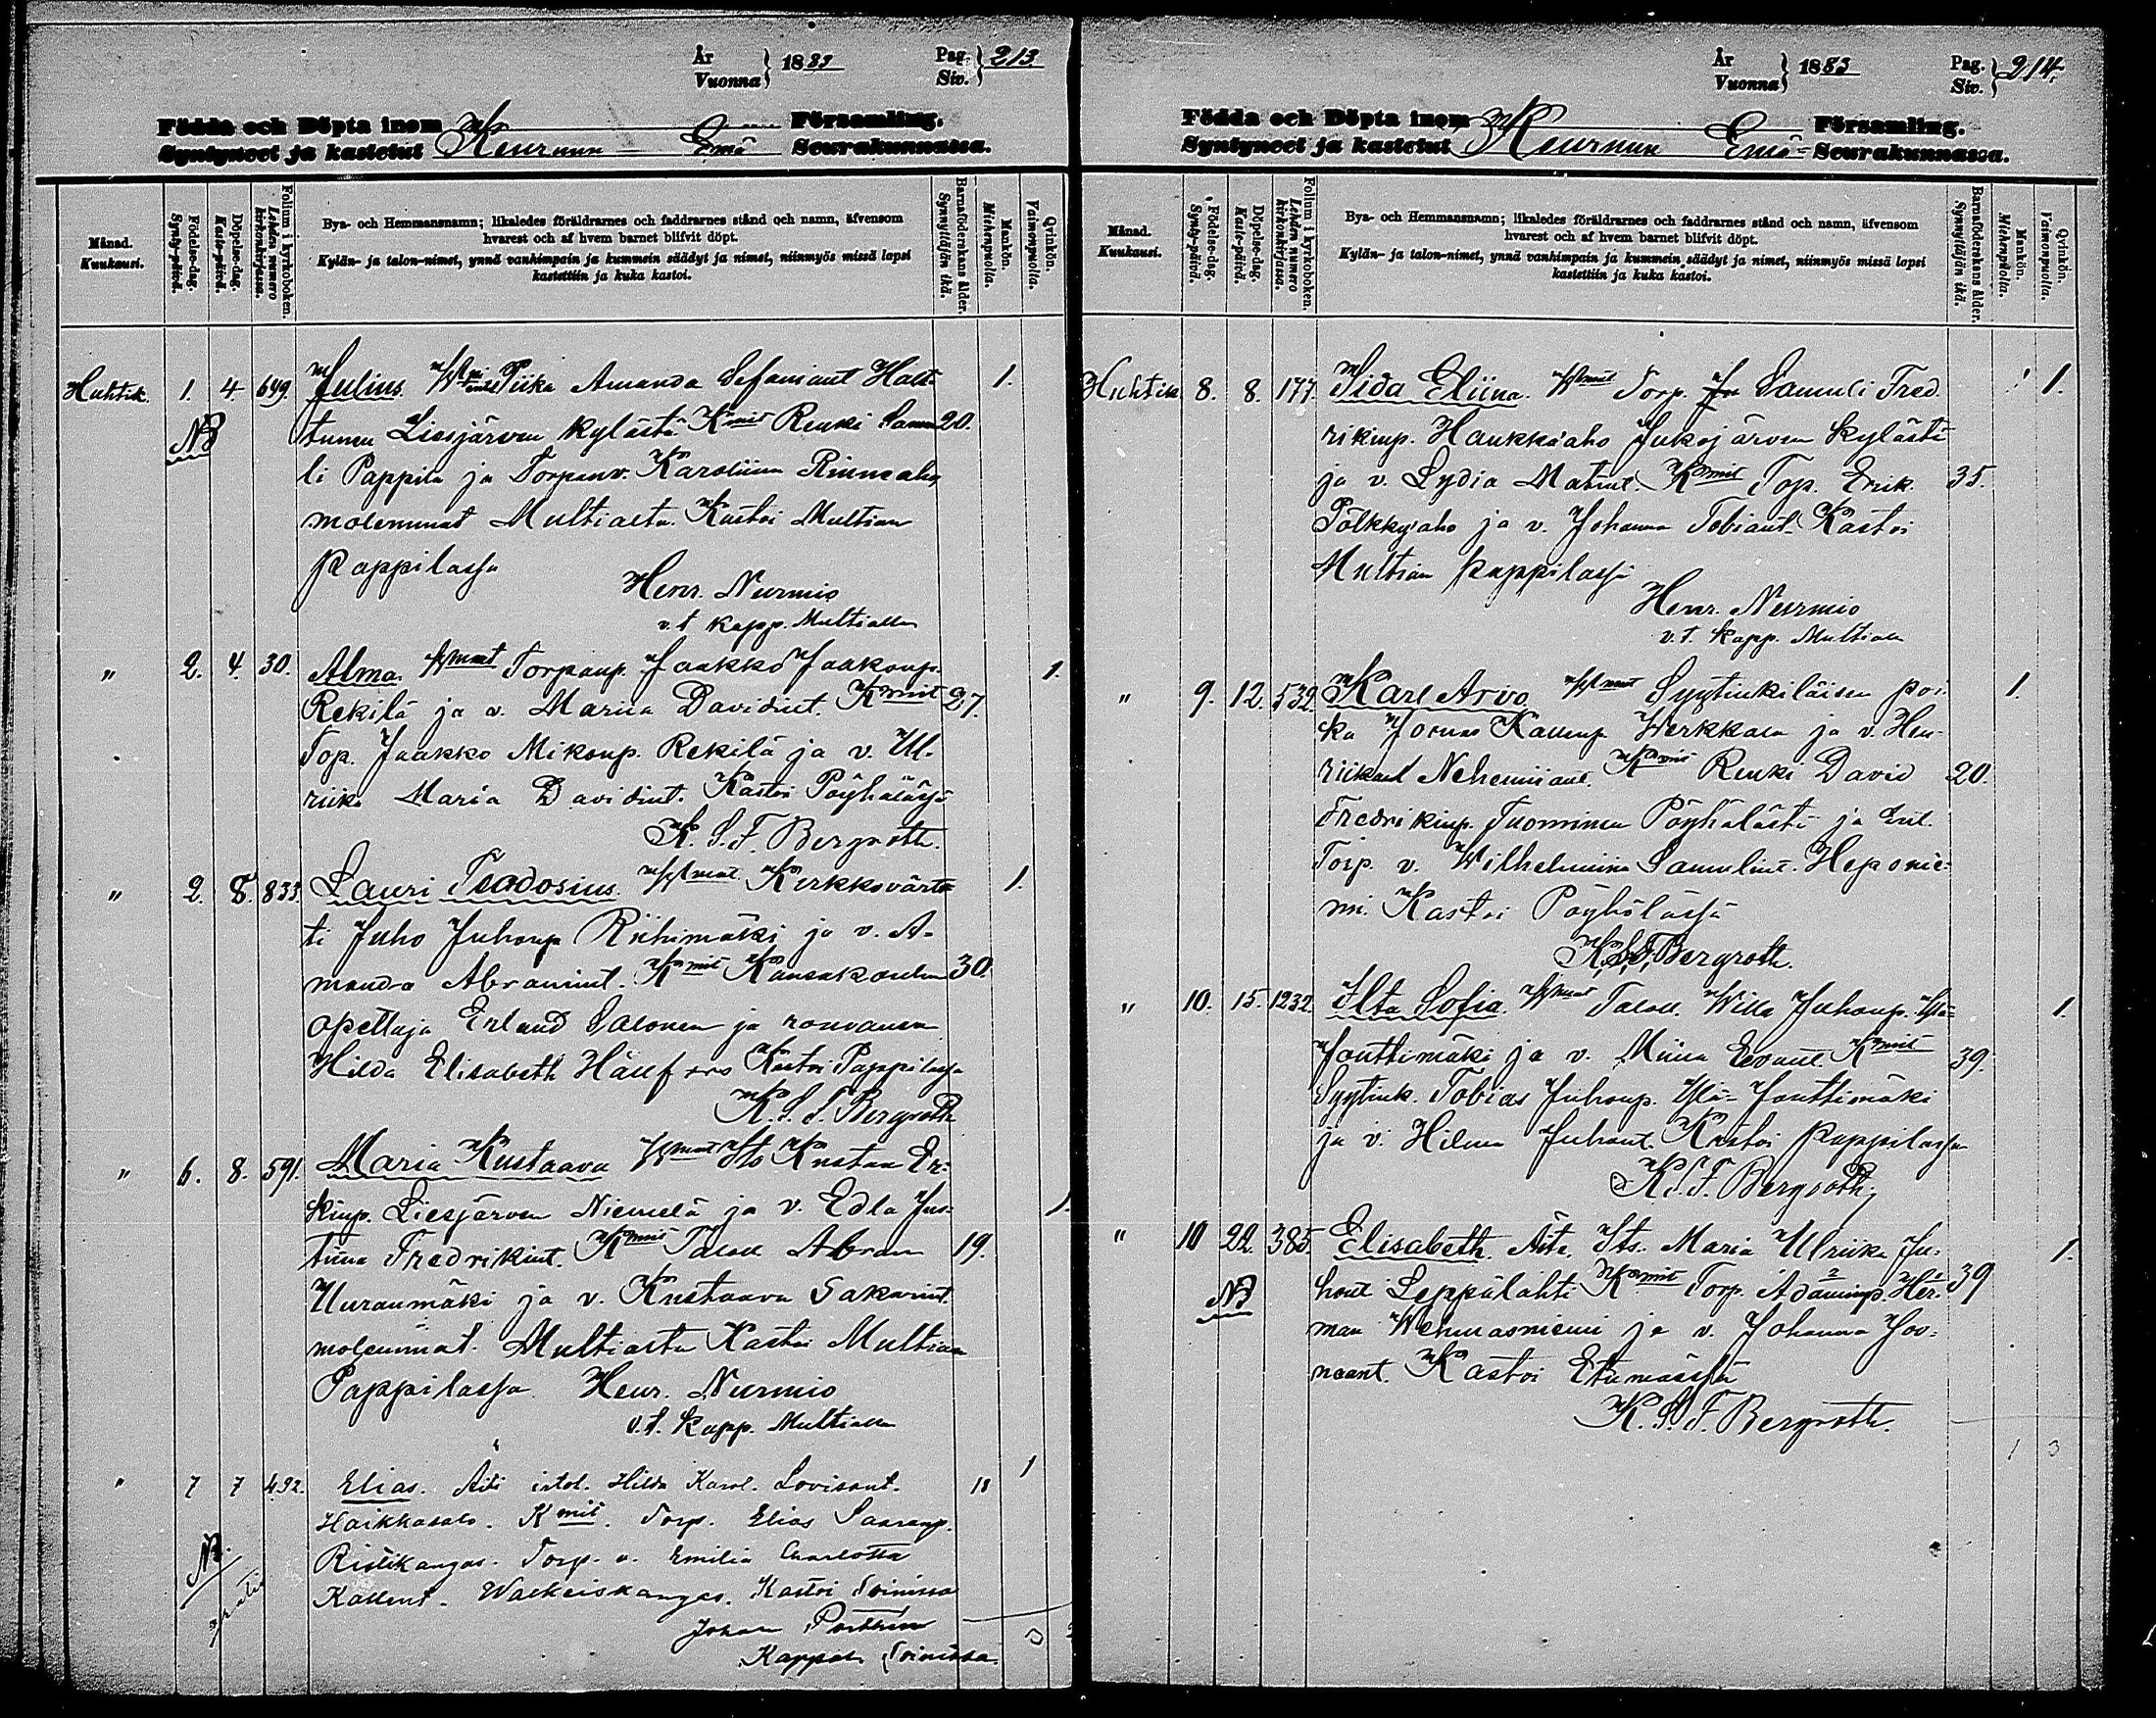 År
Vuonna } 1883
Pag.
Siv. } 213.
Födda och Döpta inom Församling.
Syntyneet ja kastetut Keuruun Emä Seurakunnassa.
Månad.
Kuukausi.
Födelse-dag.
Synty-päivä.
Döpelse-dag.
Kaste-päivä.
Folium i kyrkoboken.
Lehden numero kirkonkirjassa.
Bya- och Hemmansnamn; likaledes föräldrarnes och faddrarnes stånd och namn, äfvensom
hvarest och af hvem barnet blifvit döpt.
Kylän- ja talon-nimet, ynnä vanhimpain ja kummein säädyt ja nimet, niinmyös missä lapsi
kastettiin ja kuka kastoi.
Barnaföderskans ålder.
Synnyttäjän ikä.
Mankön.
Miehenpuolta.
Qvinkön.
Vaimonpuolta.
Huhtik. 1. 4 649. Julius. Piika Amanda Stefanint Halt- 1.
NB tunen Liesjärven kylästä Kmit Renki Samu 20.
li Pappila ja Torpanv. Karoliina Rinneaho,
molemmat Multialta. Kastoi Multian
pappilassa
Henr. Nurmio
v.t kapp. Multialla
" 2. 4. 30. Alma. Torpanp. Jaakko Jaakonp. 1.
Rekilä ja v. Mariia Davidint. Kmit 27.
Top. Jaakko Mikonp. Rekilä ja v. Ul-
riika Maria Davidint. Kastoi Pöyhölässä
K. S. F. Bergroth.
" 2. 8. 833. Lauri Teodosius. Kirkkovärt- 1.
ti Juho Juhonp Riihimäki ja v. A-
manda Abramint. Kmit Kansakoulun 30.
opettaja Erland Salonen ja rouvansa
Hilda Elisabeth Hällfors Kastoi Pappilassa
K. S. F. Bergroth
" 6. 8. 591. Maria Kustaava Its Kustaa Er-
kinp. Liesjärven Niemelä ja v. Edla Jus- 1.
tiina Fredrikint. Kmit Taloll Abram 19.
Uuraumäki ja v. Kustaava Sakarint.
molemmat. Multialta Kastoi Multian
Pappilassa Henr. Nurmio
v.t. kapp. Multialla
" 7 7 492. Elias. Äiti istol. Hilda Karol. Lovisant. 18 1
Haikkasalo. Kmit. Torp. Elias
NB. Ristikangas. Torp. v. Emilia Charlotta
gratis Kallent. Walkeiskangas. Kastoi Toinissa
Johan
Kappal. Toinissa. 3 2
År
Vuonna } 1883
Pag.
Siv. } 214.
Födda och Döpta inom Församling.
Syntyneet ja kastetut Keuruun Emä- Seurakunnassa.
Månad.
Kuukausi.
Födelse-dag.
Synty-päivä.
Döpelse-dag.
Kaste-päivä.
Folium i kyrkoboken.
Lehden numero kirkonkirjassa.
Bya- och Hemmansnamn; likaledes föräldrarnes och faddrarnes stånd och namn, äfvensom
hvarest och af hvem barnet blifvit döpt.
Kylän- ja talon-nimet, ynnä vanhimpain ja kummein säädyt ja nimet, niinmyös missä lapsi
kastettiin ja kuka kastoi.
Barnaföderskans ålder.
Synnyttäjän ikä.
Mankön.
Miehenpuolta.
Qvinkön.
Vaimonpuolta.
Huhtik. 8. 8. 177. Sida Eliina. Torp. Samuli Fred- 1.
rikinp. Haukka'aho Jukojärven kylästä
ja v. Lydia Matint. Kmit Top. Erik. 35.
Pölkkyaho ja v. Johanna Tobiant. Kastoi
Multian pappilassa
Henr. Nurmio
v.t. kapp. Multialla
" 9. 12. 532. Karl Arvo. Syytinkiläisen poi- 1.
ka Joonas Kallenp Werkkala ja v. Hen-
riikant Nehemiiant. Kmit Renki David 20.
Fredrikinp. Tuominen Pöyhölästä ja Entl.
Torp. v. Wilhelmiina Samulint. Heponie-
mi. Kastoi Pöyhölässä
K. S. F. Bergroth.
" 10. 15. 1232. Ilta Sofia. Taloll. Wille Juhonp. Ylä- 1.
Jouttimäki ja v. Miina Eevant. Kmit 39.
Syytink. Tobias Juhonp. Ylä-Jouttimäki
ja v. Hilma Juhont. Kastoi pappilassa
K. S. F. Bergroth.
" 10 22. 385. Elisabeth. Äiti. Its. Maria Ulriika Ju- 1.
NB hont Leppälahti Kmit Torp. Adaminp. Her- 39
man Wehmasniemi ja v. Johanna Joo-
naant. Kastoi
K. S. F. Bergroth.
1 3